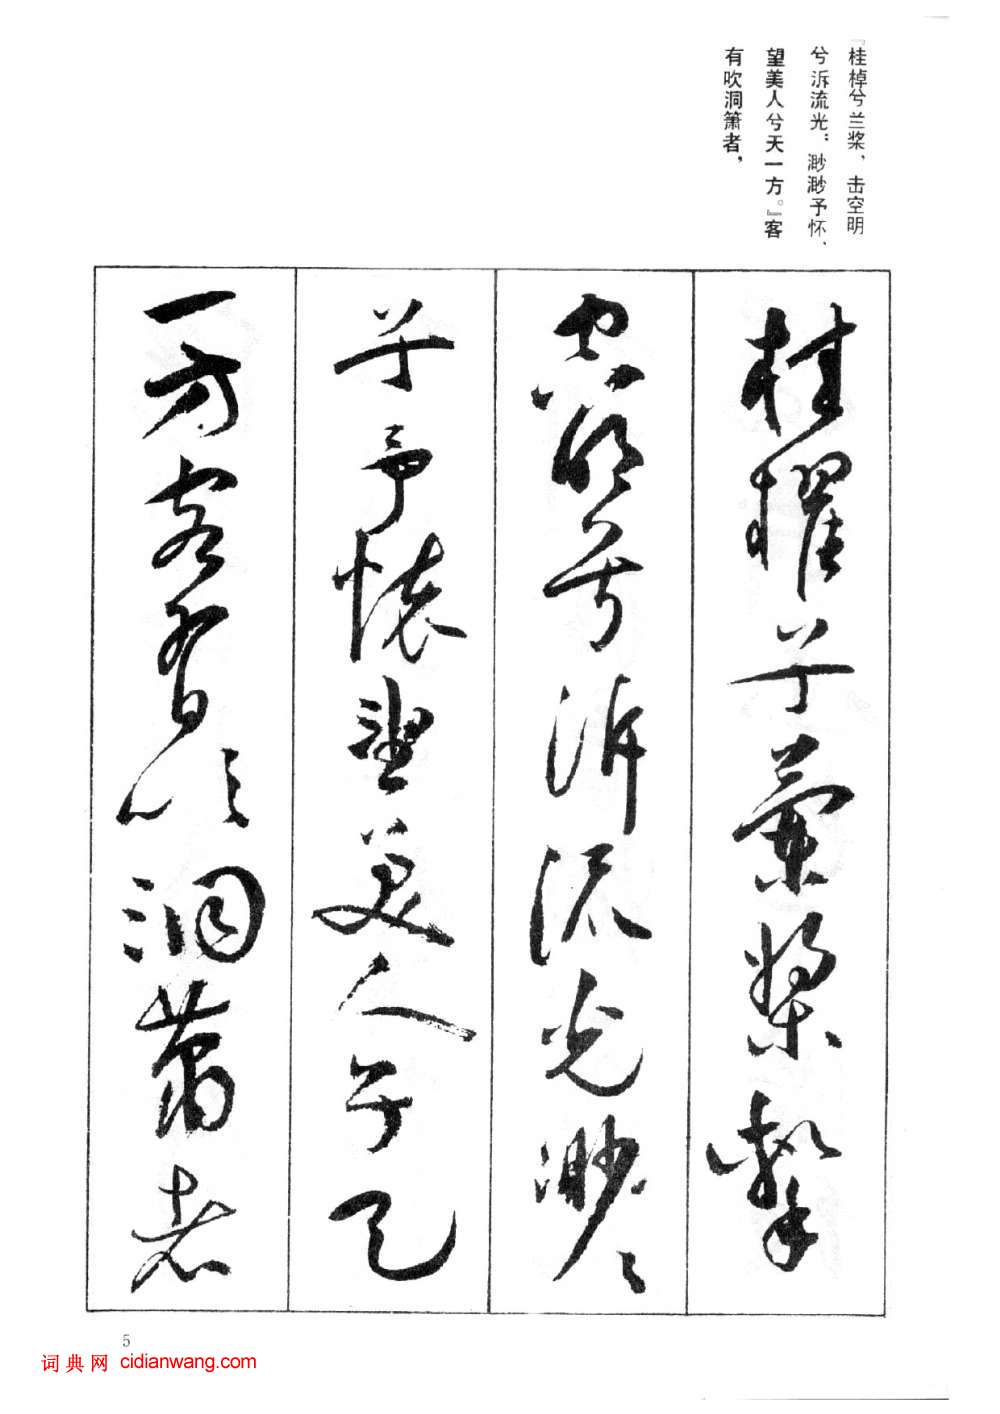 『桂棹兮兰桨，击空明
兮泝流光；渺渺予怀，
望美人兮天一方。』客
有吹洞箫者，
桂櫂兮蘭槳擊
空明兮泝流光渺〻
兮予懷望美人兮天
一方客有吹洞蕭者
5
词典网 cidianwang.com